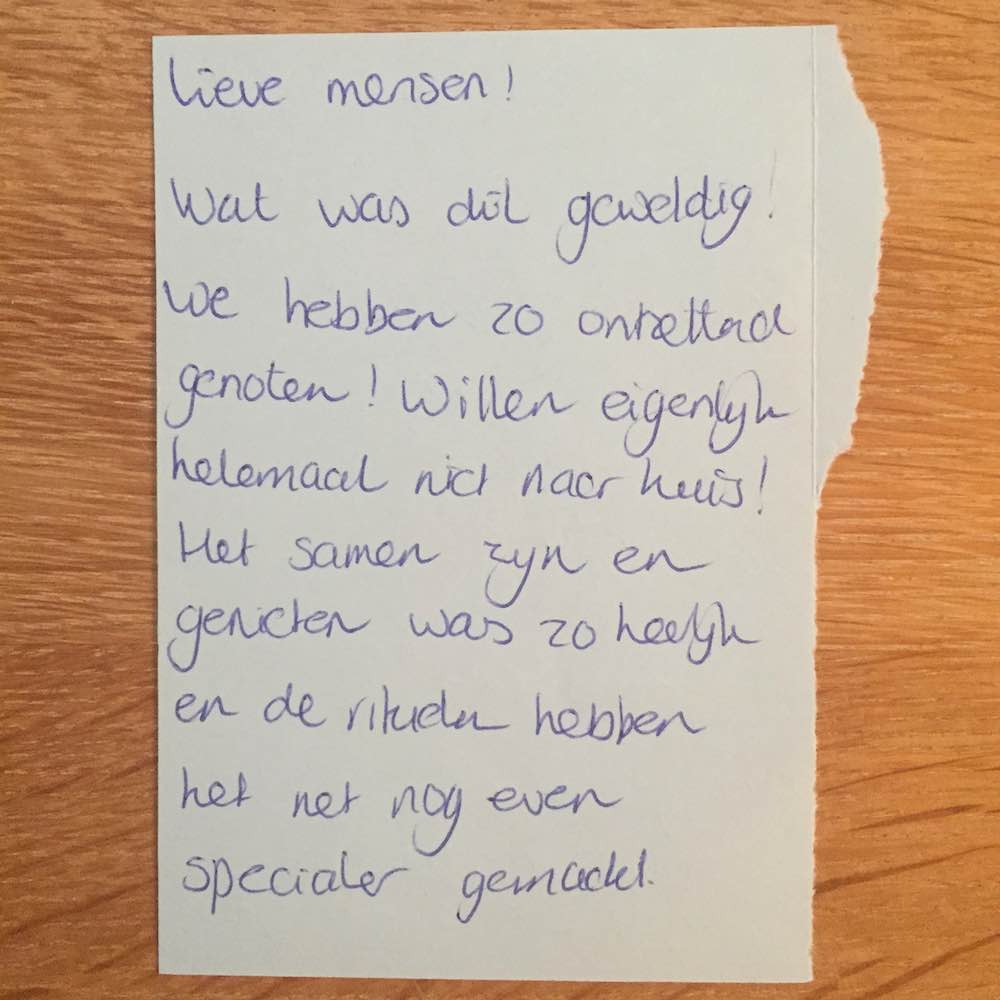 Lieve mensen!
Wat was dit geweldig!
We hebben zo ontzettend
genoten! Willen eigenlijk
helemaal niet naar huis!
Het samen zijn en
genieten was zo heerlijk
en de rituelen hebben
het net nog even
specialer gemaakt.